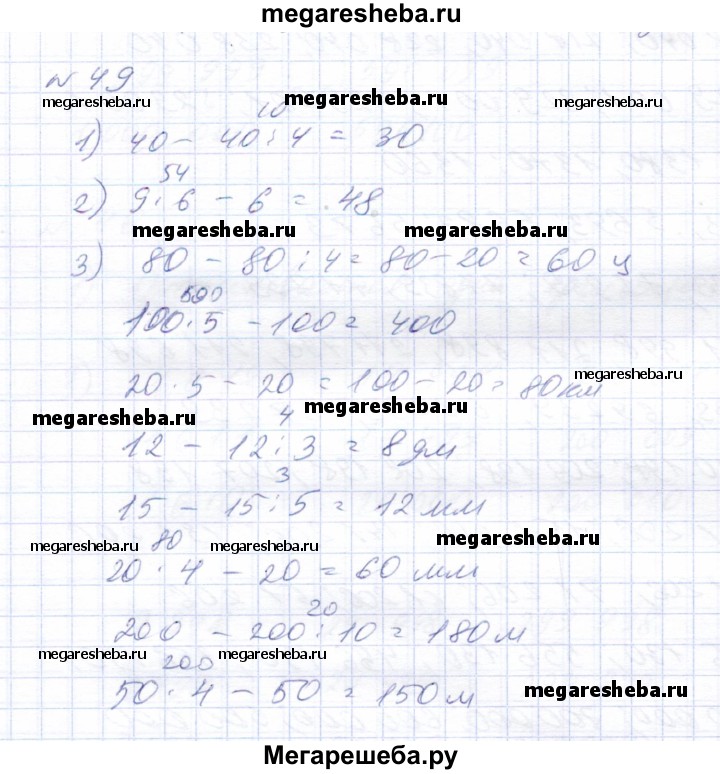 megaresheba.ru
№ 49
megaresheba.ru megaresheba.ru megaresheba.ru
10
1) 40 - 40 : 4 = 30
54
2) 9 · 6 - 6 = 48
megaresheba.ru megaresheba.ru
3) 80 - 80 : 4 = 80 - 20 = 60 ц
500
100 · 5 - 100 = 400
megaresheba.ru
20 · 5 - 20 = 100 - 20 = 80 км
megaresheba.ru megaresheba.ru
4
12 - 12 : 3 = 8 дм
3
15 - 15 : 5 = 12 мм
megaresheba.ru megaresheba.ru megaresheba.ru
80
20 · 4 - 20 = 60 мм
20
200 - 200 : 10 = 180 м
megaresheba.ru megaresheba.ru
200
50 · 4 - 50 = 150 м
megaresheba.ru
Мегарешеба.ру